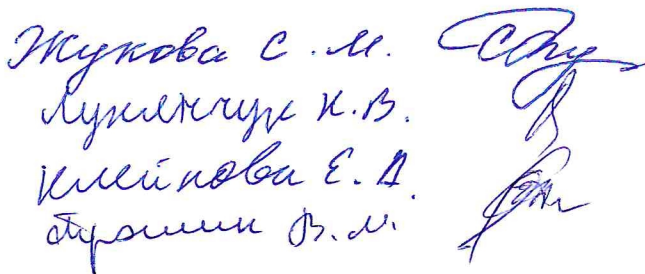 Жукова С.М.
Лукянчук К.В.
Клейнова Е.А.
В.М.